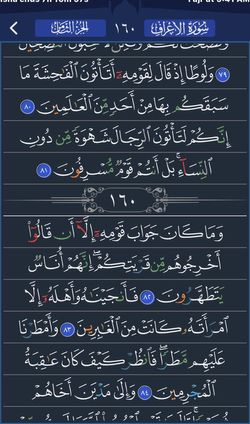 سُورَةُ الأَعْرَافِ ١٦٠ الجُزْءُ الثَّامِنُ
٧٩ وَلُوطًا إِذْ قَالَ لِقَوْمِهِۦٓ أَتَأْتُونَ ٱلْفَٰحِشَةَ مَا
سَبَقَكُم بِهَا مِنْ أَحَدٍ مِّنَ ٱلْعَٰلَمِينَ ٨٠
إِنَّكُمْ لَتَأْتُونَ ٱلرِّجَالَ شَهْوَةً مِّن دُونِ
ٱلنِّسَآءِ ۚ بَلْ أَنتُمْ قَوْمٌ مُّسْرِفُونَ ٨١
١٦٠
وَمَا كَانَ جَوَابَ قَوْمِهِۦٓ إِلَّآ أَن قَالُوٓا۟
أَخْرِجُوهُم مِّن قَرْيَتِكُمْ ۖ إِنَّهُمْ أُنَاسٌ
يَتَطَهَّرُونَ ٨٢ فَأَنجَيْنَٰهُ وَأَهْلَهُۥٓ إِلَّا
ٱمْرَأَتَهُۥ كَانَتْ مِنَ ٱلْغَٰبِرِينَ ٨٣ وَأَمْطَرْنَا
عَلَيْهِم مَّطَرًا ۖ فَٱنظُرْ كَيْفَ كَانَ عَٰقِبَةُ
ٱلْمُجْرِمِينَ ٨٤ وَإِلَىٰ مَدْيَنَ أَخَاهُمْ